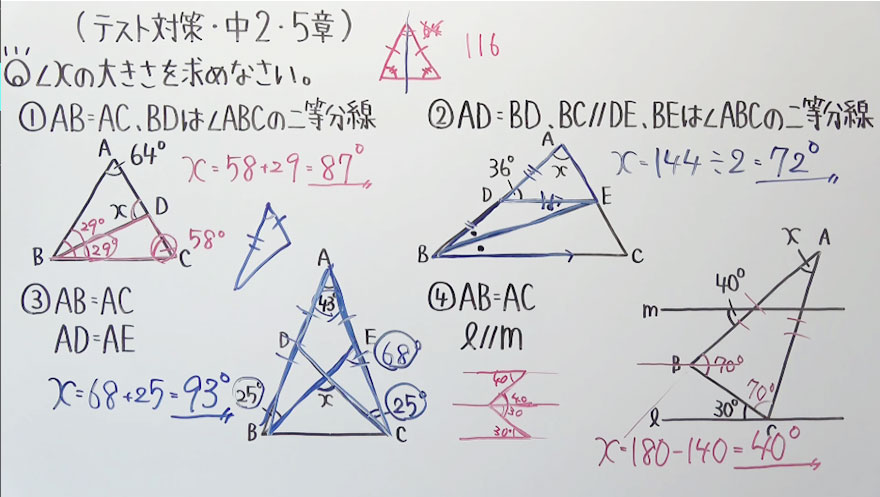 (テスト対策・中2・5章)
116
⑥∠xの大きさを求めなさい。
①AB=AC、BDは∠ABCの二等分線
A 64°
x=58+29=87°
x D
29°
29°
B C 58°
②AD=BD、BC//DE、BEは∠ABCの二等分線
A
36° x
D E
B C
x=144÷2=72°
③AB=AC
AD=AE
x=68+25=93°
A
43°
D E
68°
25° x 25°
B C
④AB=AC
l//m
40
40
30
30°
x A
40°
m
B 70°
70°
l 30° C
x=180-140=40°